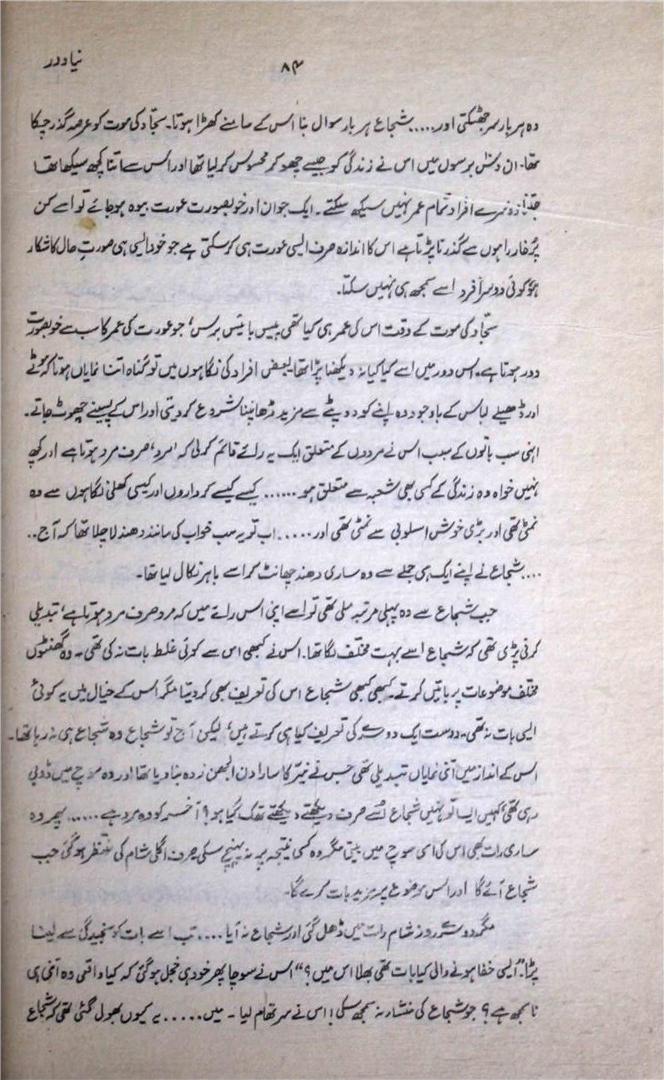 نیا دور
۸۴
وہ ہر بار سر جھٹکتی اور.... شجاع ہر بار سوال بنا اس کے سامنے کھڑا ہوتا۔ سجاد کی موت کو عرصہ گذر چکا
تھا۔ ان دس برسوں میں اس نے زندگی کو جیسے چھو کر محسوس کر لیا تھا اور اس سے اتنا کچھ سیکھا تھا
جتنا دوسرے افراد تمام عمر نہیں سیکھ سکتے۔ ایک جوان اور خوبصورت عورت بیوہ ہو جائے تو اسے کن
پُرخار راہوں سے گذرنا پڑتا ہے اس کا اندازہ صرف ایسی عورت ہی کو سکتی ہے جو خود ایسی ہی صورتِ حال کا شکار
ہو کوئی دوسرا فرد اسے سمجھ ہی نہیں سکتا۔
سجّاد کی موت کے وقت اس کی عمر ہی کیا تھی بیس بائیس برس، جو عورت کی عمر کا سب سے خوبصورت
دور ہوتا ہے۔ اس دور میں اسے کیا کیا نہ دیکھنا پڑا تھا بعض افراد کی نگاہوں میں تو گناہ اتنا نمایاں ہوتا کہ موٹے
اور ڈھیلے لباس کے باوجود وہ اپنے کو دوپٹے سے مزید ڈھانپنا شروع کر دیتی اور اس کے پسینے چھوٹ جاتے۔
انہی سب باتوں کے سبب اس نے مردوں کے متعلق ایک یہ رائے قائم کر لی کہ 'مرد' صرف مرد ہوتا ہے اور کچھ
نہیں خواہ وہ زندگی کے کسی بھی شعبہ سے متعلق ہو...... کیسے کیسے کرداروں اور کیسی کھلی نگاہوں سے وہ
نمٹی تھی اور بڑی خوش اسلوبی سے نمٹی تھی اور..... اب تو یہ سب خواب کی مانند دھندلا چلا تھا کہ آج..
.... شجاع نے اپنے ایک ہی جملے سے وہ ساری دھند چھانٹ کر اسے باہر نکال لیا تھا۔
جب شجاع سے وہ پہلی مرتبہ ملی تھی تو اسے اپنی اس رائے میں کہ مرد صرف مرد ہوتا ہے، تبدیلی
کرنی پڑی تھی کہ شجاع اسے بہت مختلف لگا تھا۔ اس نے کبھی اس سے کوئی غلط بات نہ کی تھی۔ وہ گھنٹوں
مختلف موضوعات پر باتیں کرتے۔ کبھی کبھی شجاع اس کی تعریف بھی کر دیتا مگر اس کے خیال میں یہ کوئی
ایسی بات نہ تھی۔ دوست ایک دوسرے کی تعریف کیا ہی کرتے ہیں، لیکن آج تو شجاع وہ شجاع ہی نہ رہا تھا۔
اس کے انداز میں اتنی نمایاں تبدیلی تھی جس نے نیّر کا سارا دن الجھن زدہ بنا دیا تھا اور وہ سوچ میں ڈوبی
رہی تھی کہیں ایسا تو نہیں شجاع اسے صرف دیکھتے دیکھتے تھک گیا ہو؟ آخر کو وہ مرد ہے...... پھر وہ
ساری رات بھی اس کی اسی سوچ میں بیتی مگر وہ کسی نتیجہ پر نہ پہنچ سکی صرف اگلی شام کی منتظر ہو گئی جب
شجاع آئے گا اور اس موضوع پر مزید بات کرے گا۔
مگر دوسرے روز شام رات میں ڈھل گئی اور شجاع نہ آیا.... تب اسے بات کو سنجیدگی سے لینا
پڑا۔ "ایسی خفا ہونے والی کیا بات تھی بھلا اس میں؟" اس نے سوچا پھر خود ہی خجل ہو گئی کہ کیا واقعی وہ اتنی ہی
ناسمجھ ہے؟ جو شجاع کی منشاء نہ سمجھ سکی! اس نے سر تھام لیا۔ میں..... یہ کیوں بھول گئی تھی کہ شجاع